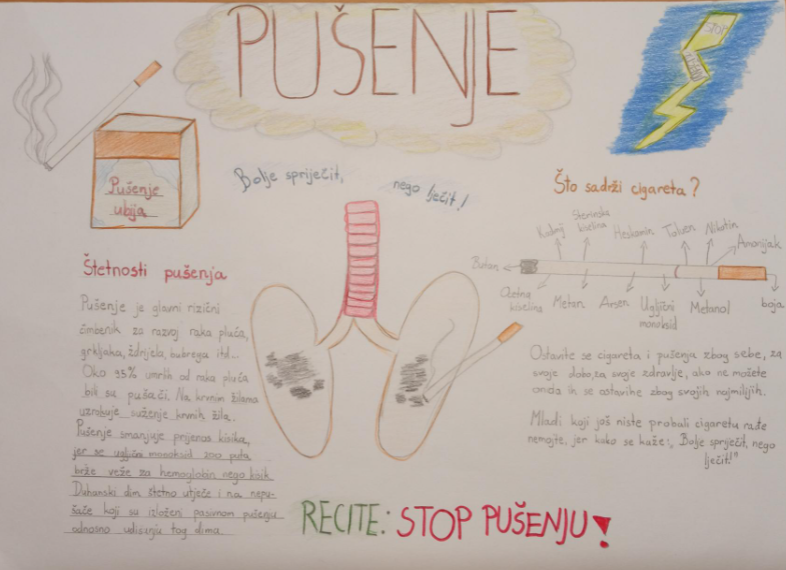 PUŠENJE
STOP
PUŠENJU
Pušenje
ubija
Bolje spriječit,
nego lječit!
Štetnosti pušenja
Pušenje je glavni rizični
čimbenik za razvoj raka pluća,
grkljaka, ždrijela, bubrega itd...
Oko 95% umrlih od raka pluća
bili su pušači. Na krvnim žilama
uzrokuje suženje krvnih žila.
Pušenje smanjuje prijenos kisika,
jer se ugljični monoksid 200 puta
brže veže za hemoglobin nego kisik
Duhanski dim štetno utječe i na nepu-
šače koji su izloženi pasivnom pušenju
odnosno udisanju tog dima
Što sadrži cigareta?
Kadmij
Sterinska
kiselina
Heksamin
Toluen
Nikotin
Amonijak
Butan
Octna
kiselina
Metan
Arsen
Ugljični
monoksid
Metanol
boja
Ostavite se cigareta i pušenja zbog sebe, za
svoje dobo, za svoje zdravlje, ako ne možete
onda ih se ostavite zbog svojih najmilijih.
Mladi koji još niste probali cigaretu
nemojte, jer kako se kaže: „Bolje spriječit, nego
lječit!"
RECITE: STOP PUŠENJU!